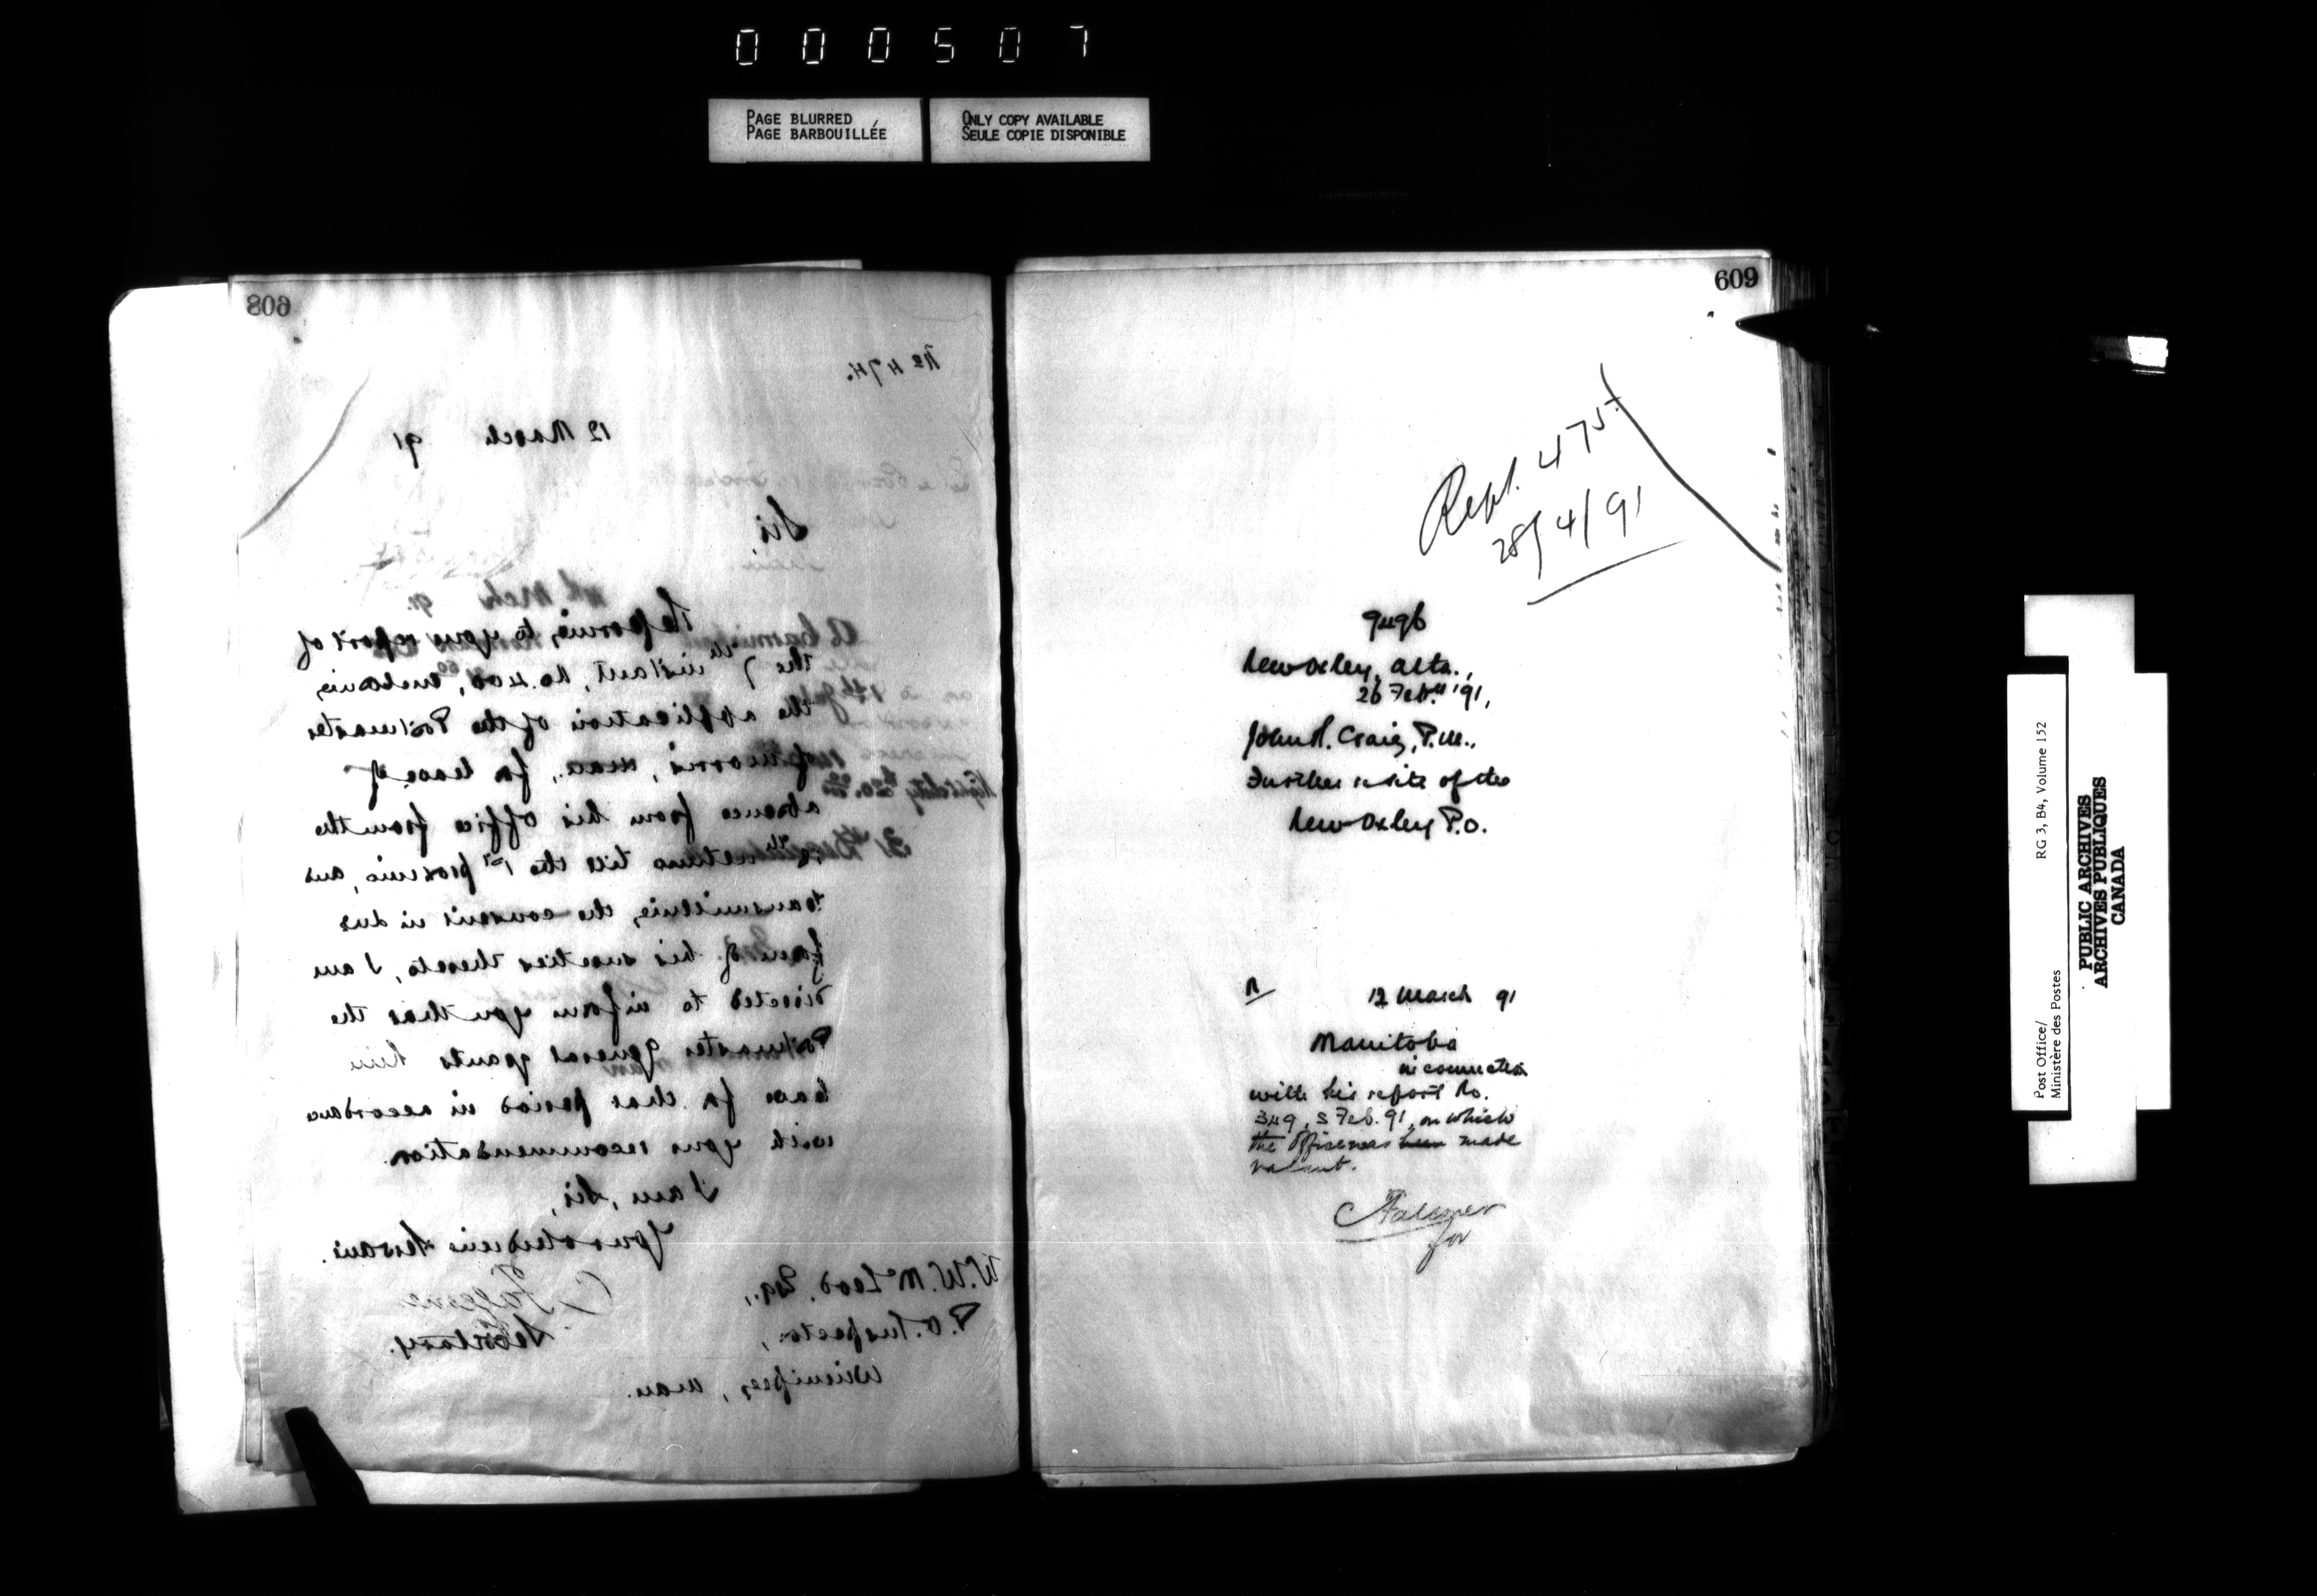 000507
PAGE BLURRED
PAGE BARBOUILLÉE
ONLY COPY AVAILABLE
SEULE COPIE DISPONIBLE
608
No 474.
12 March 91
Sir,
Referring to your report of
the 7th instant, No. 400, enclosing
the application of the Postmaster
of Morris, Man., for leave of
absence from his office from the
till the 1st proximo, and
transmitting the consent in due
form of his sureties thereto, I am
directed to inform you that the
Postmaster General grants him
leave for that period in accordance
with your recommendation.
I am, Sir,
Your obedient Servant.
Secretary.
W. W. McLeod, Esq.,
P. O. Inspector,
Winnipeg, Man.
609
Rept. 475
28/4/91
9496
New Oxley, Alta.,
26 Feb. '91,
John R. Craig, P.M.,
Further re site of the
New Oxley P.O.
R
12 March 91
Manitoba
in connection
with his report No.
349, 5 Feb. 91, on which
the office was been made
vacant.
for
Post Office/
Ministère des Postes
RG 3, B4, Volume 152
PUBLIC ARCHIVES
ARCHIVES PUBLIQUES
CANADA